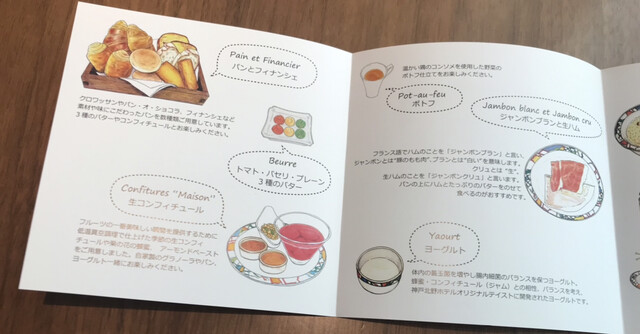 Pain et Financier
パンとフィナンシェ
クロワッサンやパン・オ・ショコラ、フィナンシェなど
素材や味にこだわったパンを数種類ご用意しています。
3種のバターやコンフィチュールとお楽しみください。
Beurre
トマト・パセリ・プレーン
3種のバター
Confitures "Maison"
生コンフィチュール
フルーツの一番美味しい時間を提供するために
低温真空調理で仕上げた季節の生コンフィ
チュールや菜の花の蜂蜜、アーモンドペースト
をご用意しました。自家製のグラノーラやパン、
ヨーグルトと一緒にお楽しみください。
温かい鶏のコンソメを使用した野菜の
ポトフ仕立てをお楽しみください。
Pot-au-feu
ポトフ
Jambon blanc et Jambon cru
ジャンボンブランと生ハム
フランス語でハムのことを「ジャンボンブラン」と言い、
ジャンボンとは"豚のもも肉"、ブランとは"白い"を意味します。
クリュとは"生"。
生ハムのことを「ジャンボンクリュ」と言います。
パンの上にハムとたっぷりのバターをのせて
食べるのがおすすめです。
Yaourt
ヨーグルト
体内の善玉菌を増やし腸内細菌のバランスを保つヨーグルト。
蜂蜜・コンフィチュール（ジャム）との相性、バランスを考え、
神戸北野ホテルオリジナルテイストに開発されたヨーグルトです。